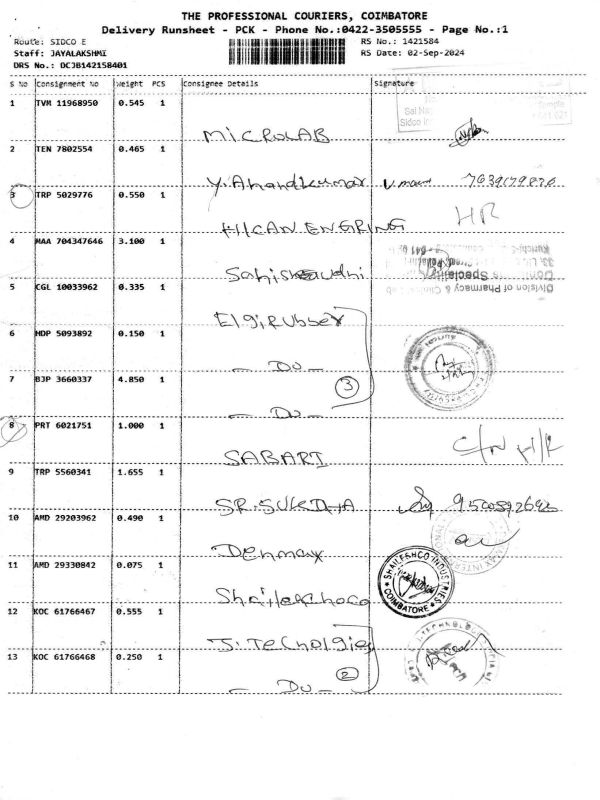 THE PROFESSIONAL COURIERS, COIMBATORE
Delivery Runsheet - PCK - Phone No.:0422-3505555 - Page No.:1
Route: SIDCO E RS No.: 1421584
Staff: JAYALAKSHMI RS Date: 02-Sep-2024
DRS No.: DCJB142158401
S No Consignment No Weight PCS Consignee Details Signature
1 TVM 11968950 0.545 1
MICROLAB
2 TEN 7802554 0.465 1
Y. Anandkumar
3 TRP 5029776 0.550 1
HICAN ENGRING HR
4 MAA 704347646 3.100 1
Division of Pharmacy &
5 CGL 10033962 0.335 1
Elgirubber
6 HDP 5093892 0.150 1
— Do —
7 BJP 3660337 4.850 1
3
— Do —
8 PRT 6021751 1.000 1
SABARI
9 TRP 5560341 1.655 1
10 AMD 29203962 0.490 1
Denmax
11 AMD 29330842 0.075 1
COIMBATORE
12 KOC 61766467 0.555 1
J. Tecnolgies
13 KOC 61766468 0.250 1
2
— Do —